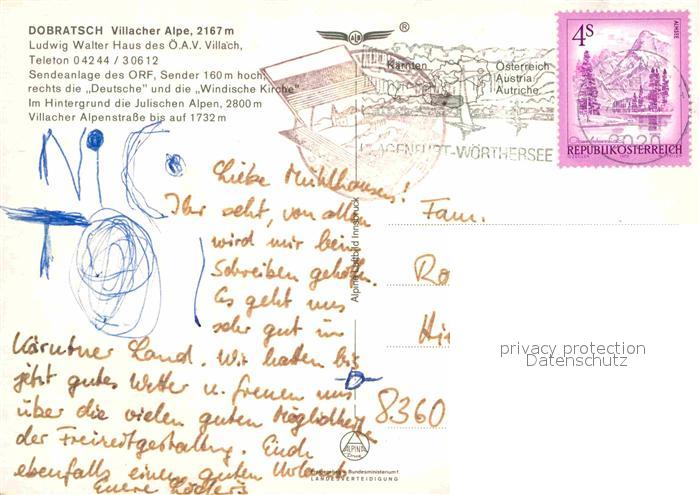 DOBRATSCH Villacher Alpe, 2167 m
Ludwig Walter Haus des Ö.A.V. Villach,
Telefon 04244 / 30612
Sendeanlage des ORF, Sender 160 m hoch,
rechts die „Deutsche" und die „Windische Kirche"
Im Hintergrund die Julischen Alpen, 2800 m
Villacher Alpenstraße bis auf 1732 m
®
Kärnten
Österreich
Austria
Autriche
KLAGENFURT-WÖRTHERSEE
4S
ALMSEE
REPUBLIK ÖSTERREICH
NICO
Liebe Mühlhausens!
Ihr seht, von allen
wird mir beim
Schreiben geholfen.
Es geht uns
sehr gut im
Kärntner Land. Wir hatten bis
jetzt gutes Wetter u. freuen uns
über die vielen guten Möglichkeiten
der Freizeitgestaltung. Euch
ebenfalls einen guten Urlaub
Euere
Alpine Luftbild Innsbruck
Fam.
Ro
Hi
D-
8360
ALPINA
Druck
Bundesministerium f.
LANDESVERTEIDIGUNG
privacy protection
Datenschutz